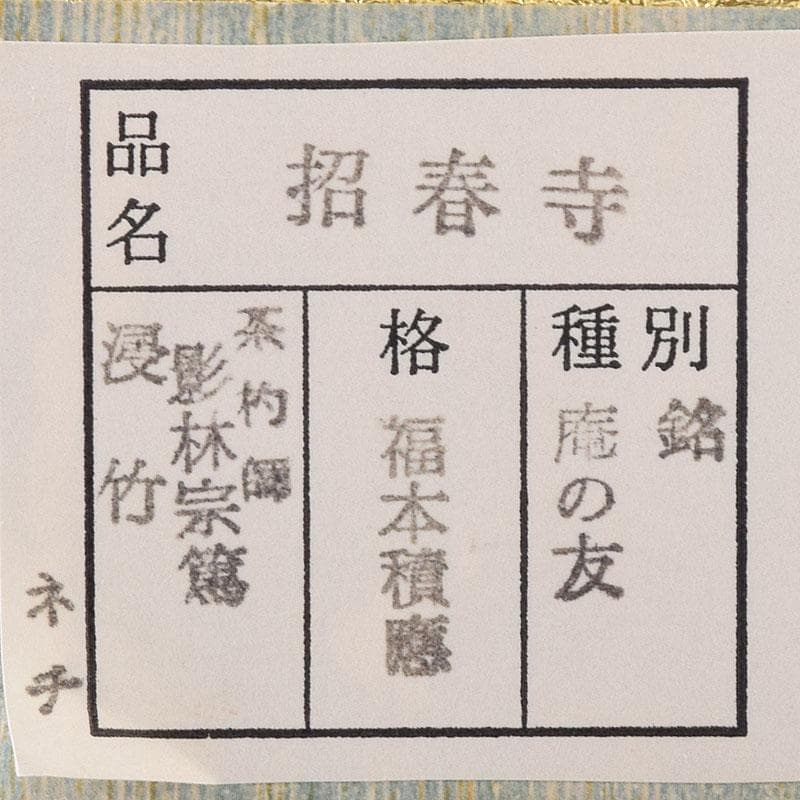 品名
招春寺
種別
銘
庵の友
格
福本積應
茶杓師
影林宗篤
浸竹
ネチ